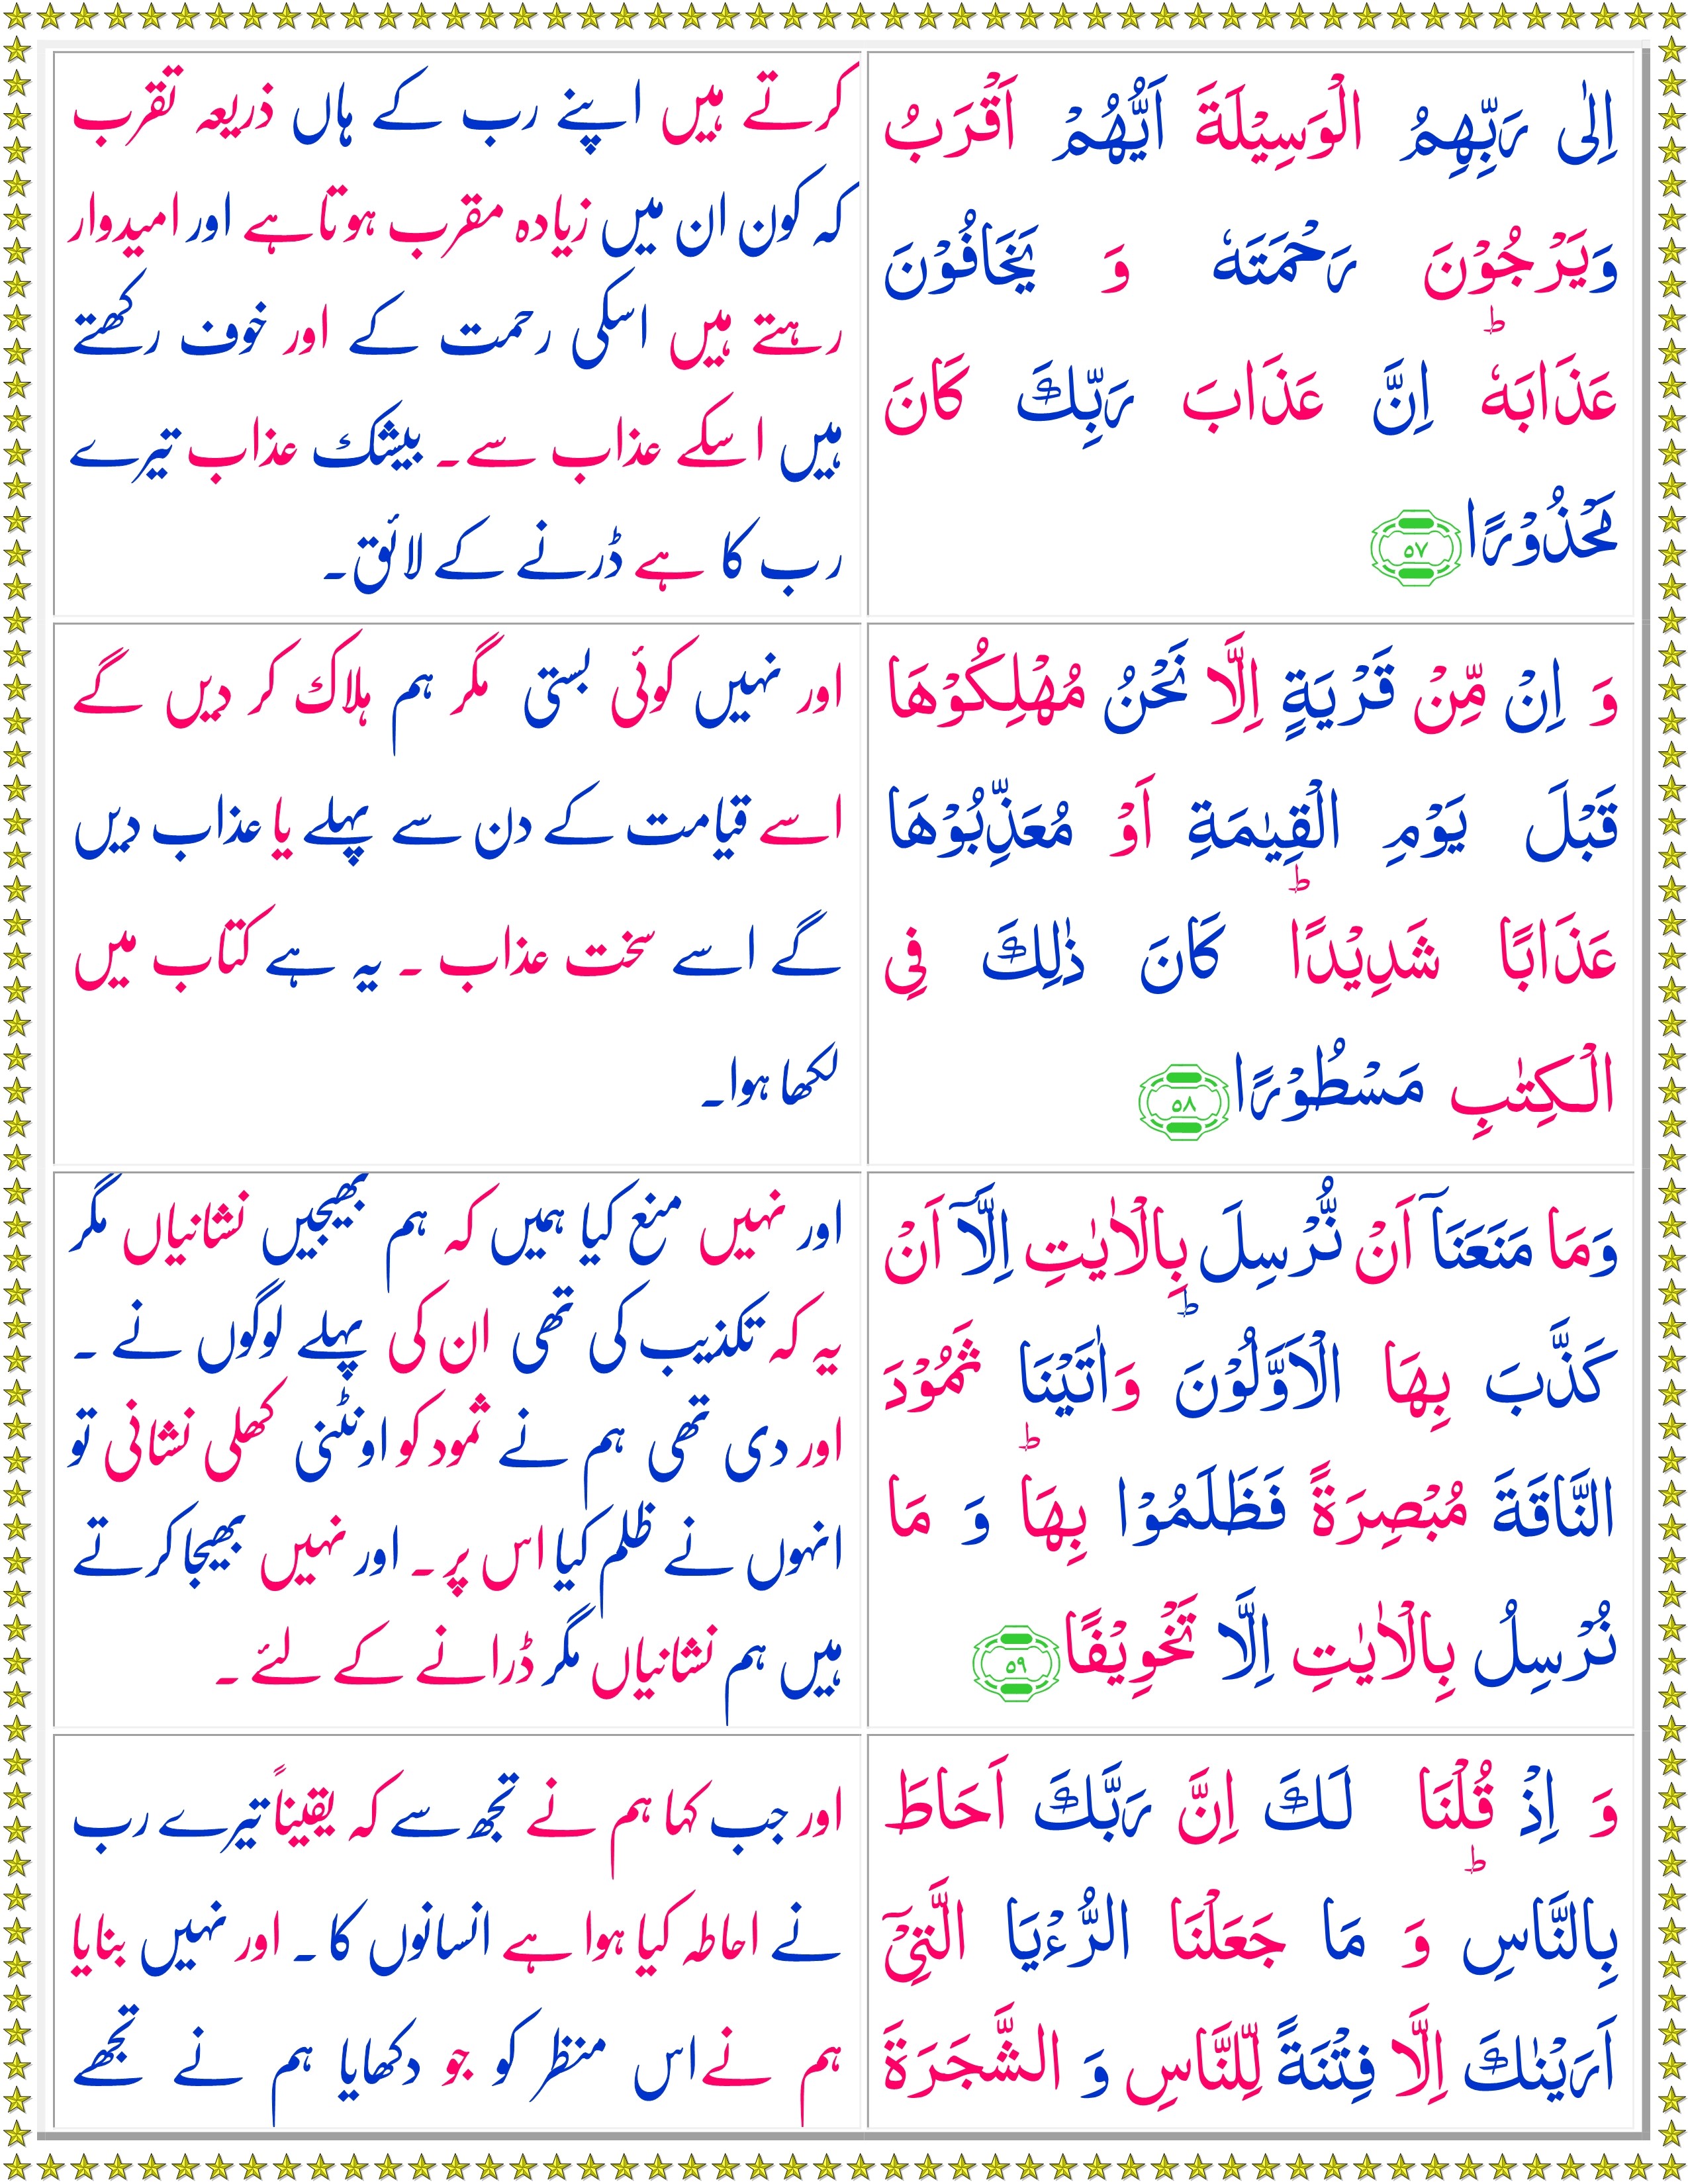 اِلٰى رَبِّهِمُ الْوَسِيْلَةَ اَيُّهُمْ اَقْرَبُ
وَيَرْجُوْنَ رَحْمَتَهٗ وَ يَخَافُوْنَ
عَذَابَهٗ ؕ اِنَّ عَذَابَ رَبِّكَ كَانَ
مَحْذُوْرًا ۵۷
کرتے ہیں اپنے رب کے ہاں ذریعہ تقرب
کہ کون ان میں زیادہ مقرب ہوتا ہے اور امیدوار
رہتے ہیں اسکی رحمت کے اور خوف رکھتے
ہیں اسکے عذاب سے۔ بیشک عذاب تیرے
رب کا ہے ڈرنے کے لائق۔
وَ اِنْ مِّنْ قَرْيَةٍ اِلَّا نَحْنُ مُهْلِكُوْهَا
قَبْلَ يَوْمِ الْقِيٰمَةِ اَوْ مُعَذِّبُوْهَا
عَذَابًا شَدِيْدًا ؕ كَانَ ذٰلِكَ فِى
الْـكِتٰبِ مَسْطُوْرًا ۵۸
اور نہیں کوئی بستی مگر ہم ہلاک کر دیں گے
اسے قیامت کے دن سے پہلے یا عذاب دیں
گے اسے سخت عذاب ۔ یہ ہے کتاب میں
لکھا ہوا۔
وَمَا مَنَعَنَاۤ اَنْ نُّرْسِلَ بِالْاٰيٰتِ اِلَّاۤ اَنْ
كَذَّبَ بِهَا الْاَوَّلُوْنَ ؕ وَاٰتَيْنَا ثَمُوْدَ
النَّاقَةَ مُبْصِرَةً فَظَلَمُوْا بِهَا ؕ وَ مَا
نُرْسِلُ بِالْاٰيٰتِ اِلَّا تَخْوِيْفًا ۵۹
اور نہیں منع کیا ہمیں کہ ہم بھیجیں نشانیاں مگر
یہ کہ تکذیب کی تھی ان کی پہلے لوگوں نے ۔
اور دی تھی ہم نے ثمود کو اونٹنی کھلی نشانی تو
انہوں نے ظلم کیا اس پر۔ اور نہیں بھیجا کرتے
ہیں ہم نشانیاں مگر ڈرانے کے لئے ۔
وَ اِذْ قُلْنَا لَـكَ اِنَّ رَبَّكَ اَحَاطَ
بِالنَّاسِ ؕ وَ مَا جَعَلْنَا الرُّءْيَا الَّتِىْۤ
اَرَيْنٰكَ اِلَّا فِتْنَةً لِّلنَّاسِ وَ الشَّجَرَةَ
اور جب کہا ہم نے تجھ سے کہ یقیناً تیرے رب
نے احاطہ کیا ہوا ہے انسانوں کا۔ اور نہیں بنایا
ہم نے اس منظر کو جو دکھایا ہم نے تجھے